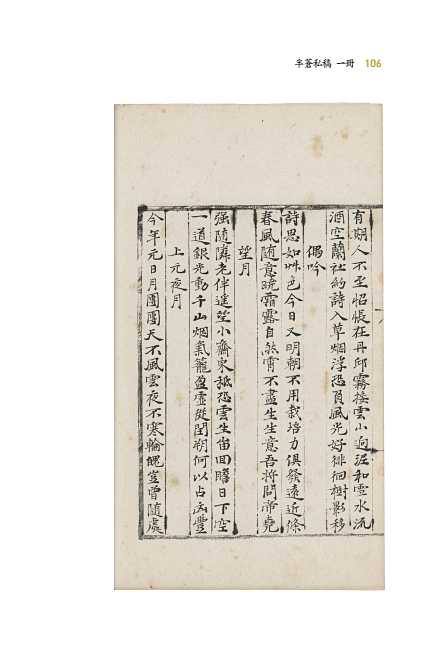 半蒼私稿 一冊 106
有期人不至怊悵在丹邱霧接雲小逈泥和雪水流
酒空蘭社約詩入草烟浮恐負風光好徘徊樹影移
偶吟
詩思如艸色今日又明朝不用栽培力俱發遠近條
春風随意疏霜露自然霄不盡生生意吾將問帝堯
望月
强随隣老伴遠望小齋東秪恐雲生宙回瞻日下空
一道銀光動千山烟氣籠盈虛從閏朔何以占凶豐
上元夜月
今年元日月團團天不風雲夜不寒輪魄豈曾隨處